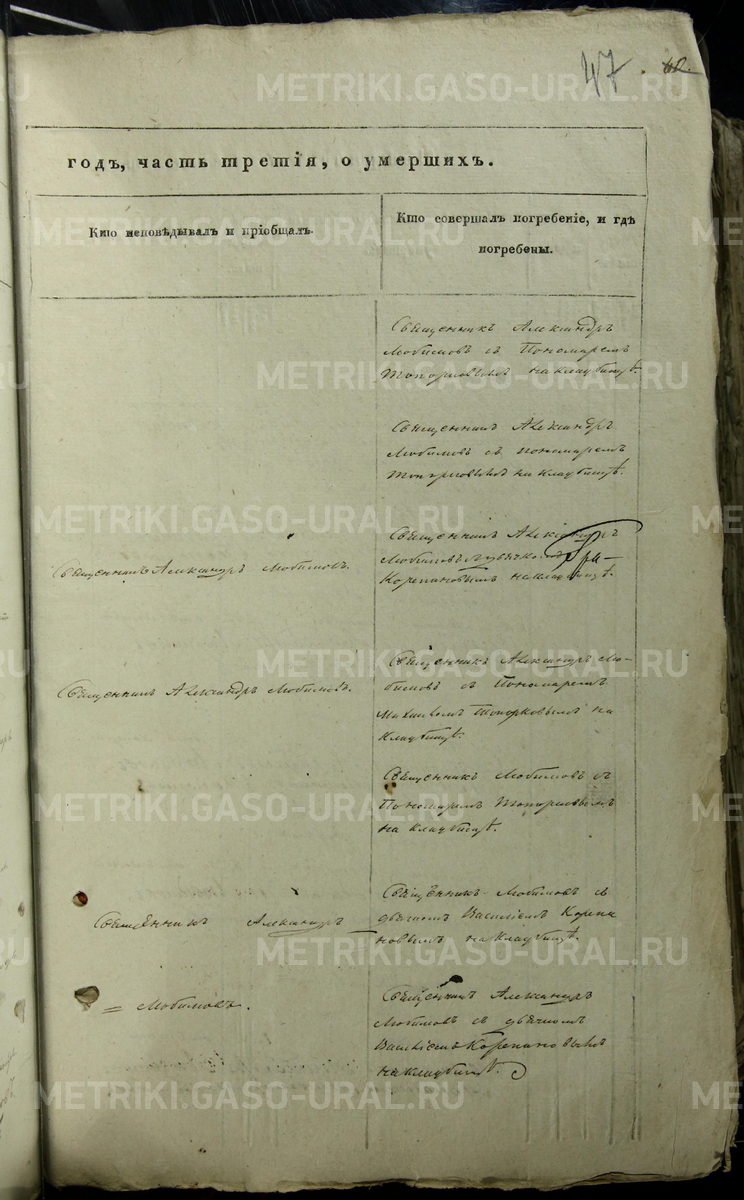 47. 42.
METRIKI.GASO-URAL.RU METRIKI.GASO-URAL.RU
годъ, часть третія, о умершихъ.
Кто исповѣдывалъ и пріобщалъ.
Кто совершалъ погребеніе, и гдѣ
погребены.
Священникъ Александръ
Любимовъ съ Пономаремъ
Топорковымъ на кладбищѣ.
Священникъ Александръ
Любимовъ съ пономаремъ
Топорковымъ на кладбищѣ.
Священникъ Александръ Любимовъ.
Священникъ Александръ
Любимовъ
Корепановымъ на кладбищѣ.
Священникъ Александръ Любимовъ.
Священникъ Александръ Лю-
бимовъ съ Пономаремъ
Топорковымъ на
кладбищѣ.
Священникъ Любимовъ съ
Пономаремъ Топорковымъ
на кладбищѣ.
Священникъ Александръ
= Любимовъ.
Священникъ Любимовъ съ
дьячкомъ Василіемъ Корепа
новымъ на кладбищѣ.
Священникъ Александръ
Любимовъ съ дьячкомъ
Василіемъ Корепановымъ
на кладбищѣ.